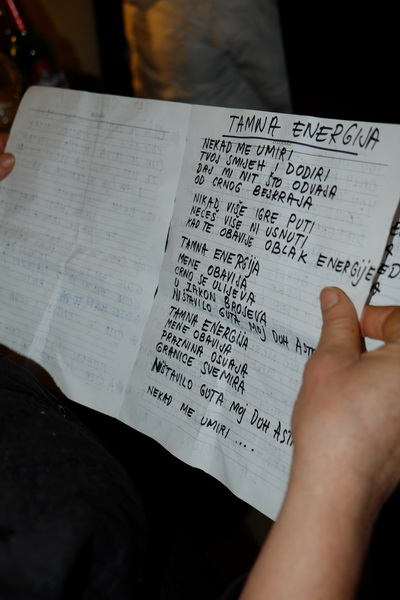 TAMNA ENERGIJA
NEKAD ME UMIRI
TVOJ SMIJEH I DODIRI
DAJ MI NIT ŠTO ODVAJA
OD CRNOG BESKRAJA
NIKAD VIŠE IGRE PUTI
NEĆEŠ VIŠE NI USNUTI
KAD TE OBAVIJE OBLAK ENERGIJE
TAMNA ENERGIJA
MENE OBAVIJA
CRNO SE ULIJEVA
U ZAKON BROJEVA
NIŠTAVILO GUTA MOJ DOH AST
TAMNA ENERGIJA
MENE OBAVIJA
PRAZNINA OSVAJA
GRANICE SVEMIRA
NIŠTAVILO GUTA MOJ DOH AST
NEKAD ME UMIRI ....